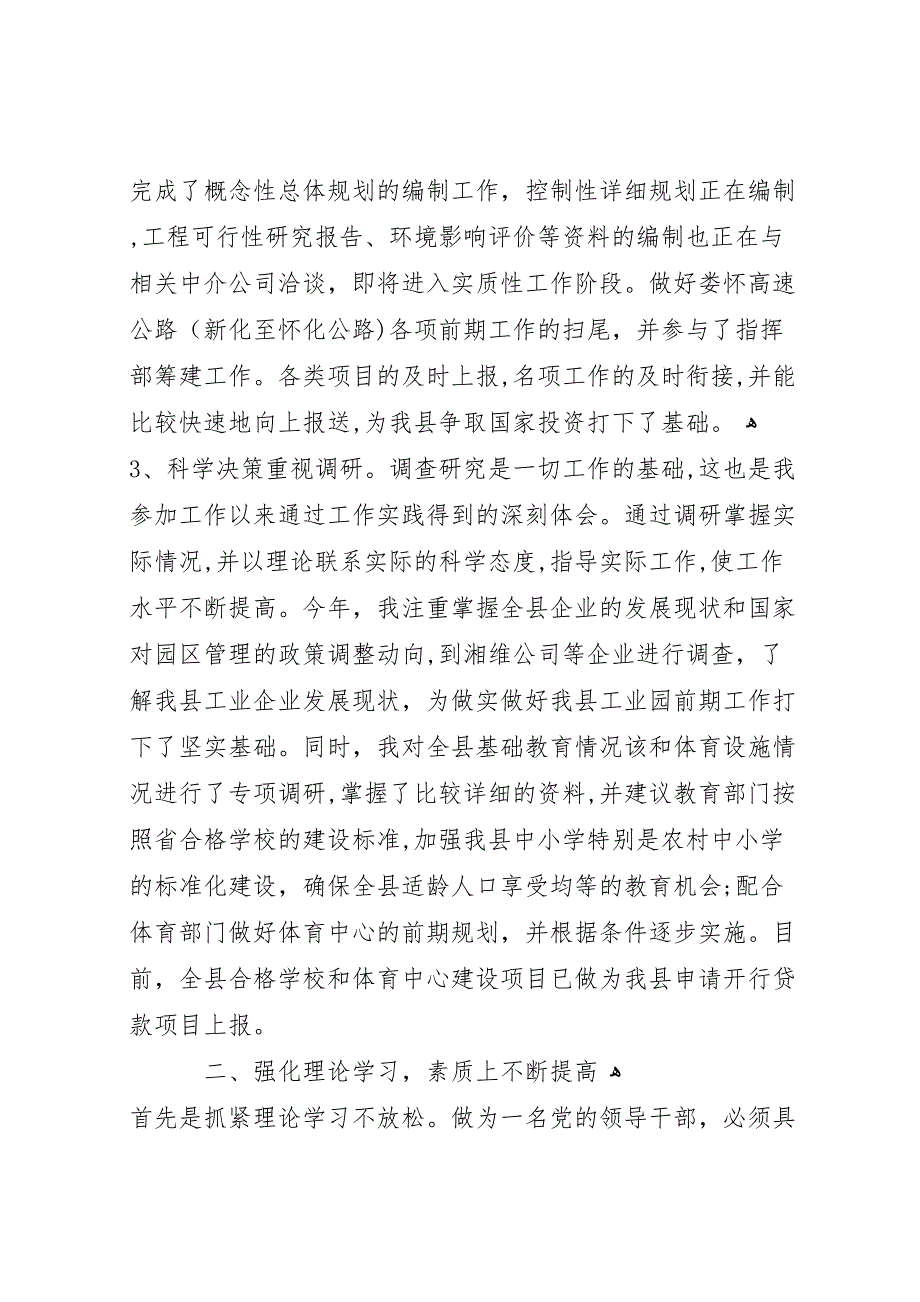 完成了概念性总体规划的编制工作，控制性详细规划正在编制
,工程可行性研究报告、环境影响评价等资料的编制也正在与
相关中介公司洽谈，即将进入实质性工作阶段。做好娄怀高速
公路（新化至怀化公路)各项前期工作的扫尾，并参与了指挥
部筹建工作。各类项目的及时上报,名项工作的及时衔接,并能
比较快速地向上报送,为我县争取国家投资打下了基础。 ﻫ
3、科学决策重视调研。调查研究是一切工作的基础,这也是我
参加工作以来通过工作实践得到的深刻体会。通过调研掌握实
际情况,并以理论联系实际的科学态度,指导实际工作,使工作
水平不断提高。今年，我注重掌握全县企业的发展现状和国家
对园区管理的政策调整动向,到湘维公司等企业进行调查，了
解我县工业企业发展现状，为做实做好我县工业园前期工作打
下了坚实基础。同时，我对全县基础教育情况该和体育设施情
况进行了专项调研,掌握了比较详细的资料,并建议教育部门按
照省合格学校的建设标准,加强我县中小学特别是农村中小学
的标准化建设，确保全县适龄人口享受均等的教育机会;配合
体育部门做好体育中心的前期规划，并根据条件逐步实施。目
前，全县合格学校和体育中心建设项目已做为我县申请开行贷
款项目上报。
二、强化理论学习，素质上不断提高 ﻫ
首先是抓紧理论学习不放松。做为一名党的领导干部，必须具